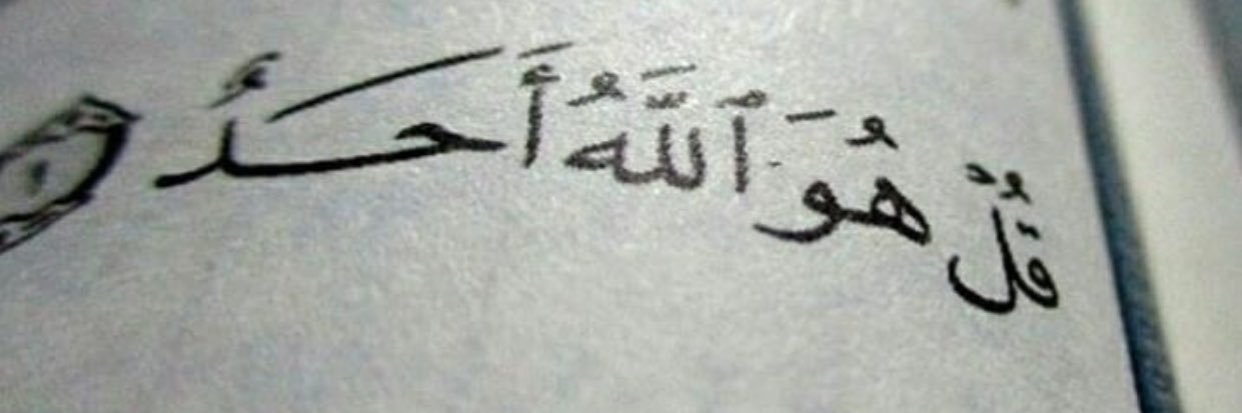 قُلْ هُوَ ٱللَّهُ أَحَدٌ ۝١